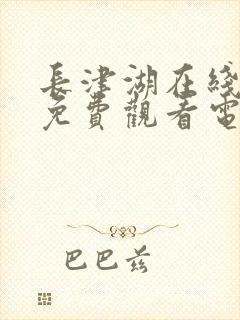 長津湖在綫
免費觀看電
巴巴兹